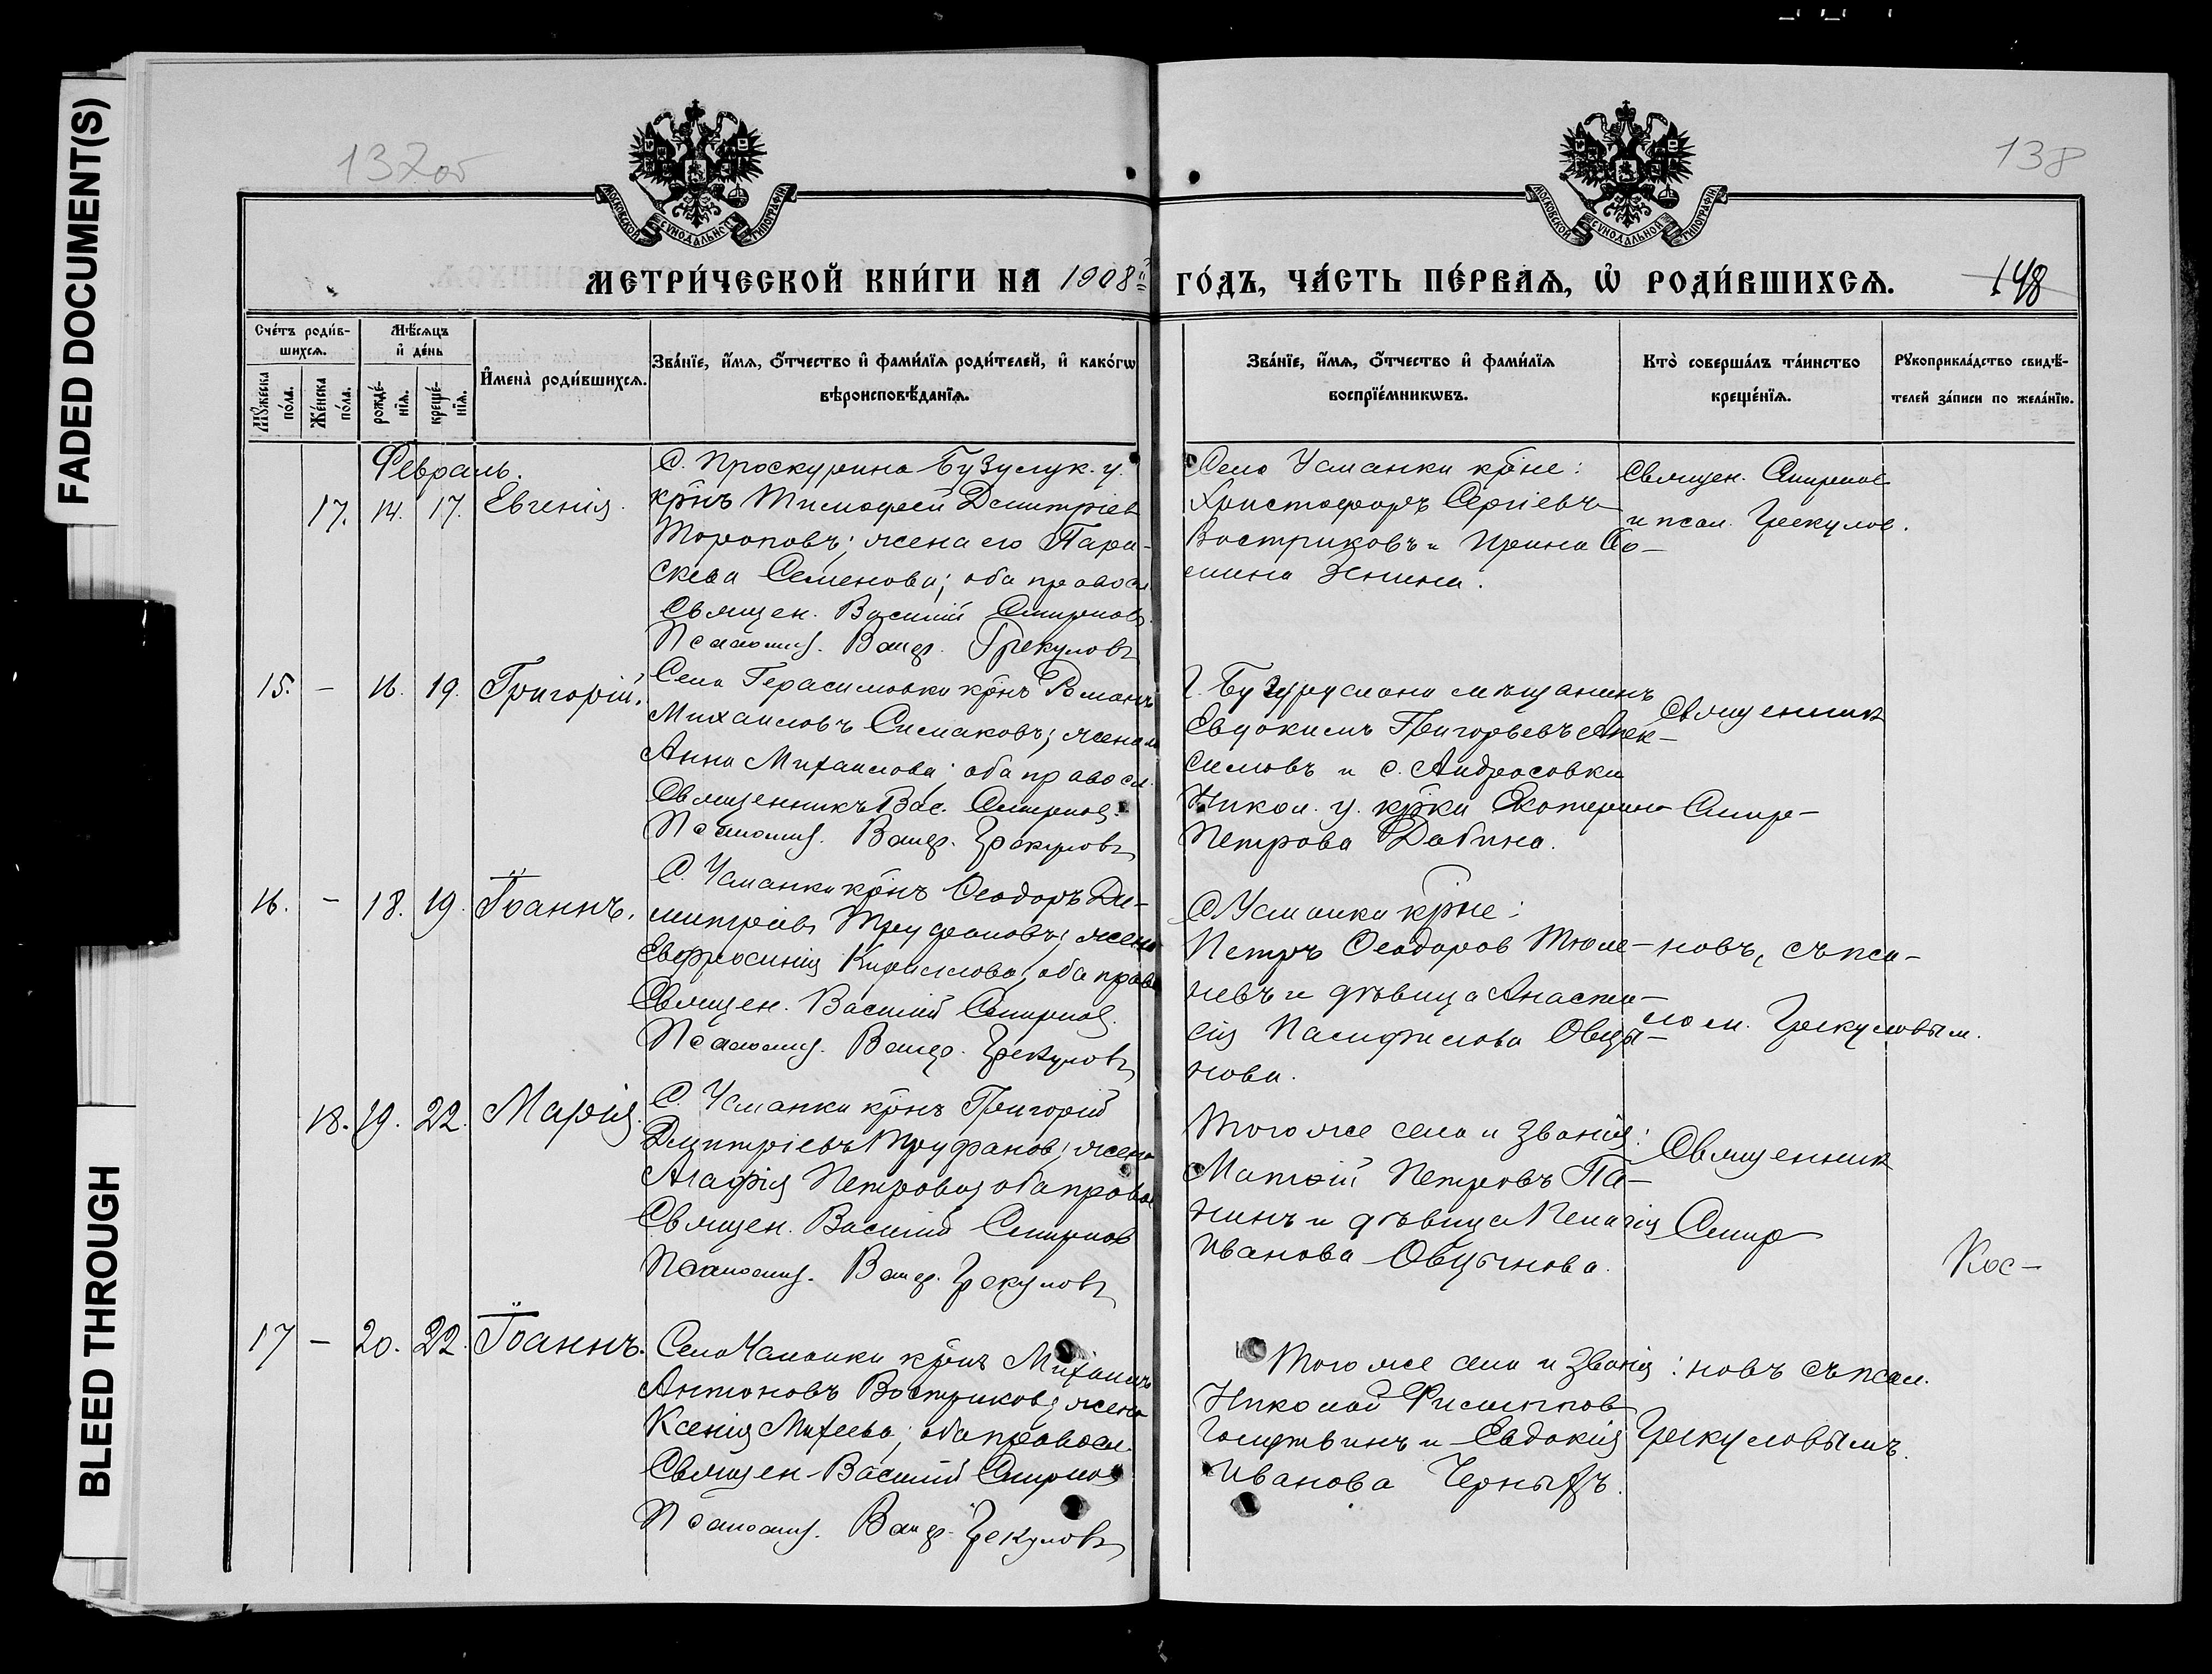 FADED DOCUMENT(S)
BLEED THROUGH
137об
138
МОСКОВСКОЙ СѴНОДАЛЬНОЙ ТИПОГРАФІИ
МОСКОВСКОЙ СѴНОДАЛЬНОЙ ТИПОГРАФІИ
МЕТРИ́ЧЕСКОЙ КНИ́ГИ НА 1908й ГО́ДЪ, ЧА́СТЬ ПЕ́РВАѦ, Ѡ҆ РОДИ́ВШИХСѦ.
148
Сче́тъ роди́в-
шихсѧ.
Мꙋ́жеска по́ла.
Же́нска по́ла.
Мѣ́сѧцъ
и҆ де́нь
рожде́-
нїѧ.
креще́-
нїѧ.
И҆мена̀ роди́вшихсѧ.
Зва́нїе, и҆́мѧ, ѻ҆́тчество и҆ фами́лїѧ роди́телей, и҆ како́гѡ
вѣроисповѣ́данїѧ.
Зва́нїе, и҆́мѧ, ѻ҆́тчество и҆ фами́лїѧ
воспрїе́мникѡвъ.
Кто̀ соверша́лъ та́инство
креще́нїѧ.
Рꙋкоприкла́дство свидѣ́-
телей за́писи по жела́нїю.
Февраль.
17. 14. 17. Евгенія.
С. Проскурина Бузулук. у.
крнъ Тимофей Димитріев
Тороповъ; жена его Пара-
скева Семенова; оба правосл.
Священ. Василій Смирновъ
Псаломщ. Влад. Грекуловъ
Село Усманки крне:
Христофоръ Сергіевъ
Востриковъ и Ирина Ѳо-
мина Зенина.
Священ. Смирнов
и псал. Грекулов.
15. – 16. 19. Григорій.
Села Герасимовки крнъ Романъ
Михаиловъ Симаковъ; жена его
Анна Михаилова; оба правосл.
Священникъ Вас. Смирнов.
Псаломщ. Влад. Грекуловъ
Г. Бугуруслана мѣщанинъ
Евдокимъ Григорьевъ Алек-
симовъ и с. Андросовки
Никол. у. крка Екатерина
Петрова Дабина.
Священникъ
Смир-
16. – 18. 19. Іоаннъ.
С. Усманки крнъ Ѳеодоръ Ди-
митріевъ Труфановъ; жена
Евфросинія Кириллова; оба правос
Священ. Василій Смирнов.
Псаломщ. Влад. Грекуловъ
С. Усманки крне:
Петръ Ѳеодоров Тюле-
невъ и дѣвица Анаста-
сія Памфилова Овцы-
нова.
новъ, съ пса-
лом. Грекуловым.
18. 19. 22. Марія.
С. Усманки крнъ Григорій
Димитріевъ Труфанов; жена
Агафія Петрова; оба правос
Священ. Василій Смирнов
Псаломщ. Влад. Грекуловъ
Того же села и званія:
Матѳій Петровъ Па-
нинъ и дѣвица Пелагія
Иванова Овцынова.
Священник
Смир
Кос-
17 – 20. 22. Іоаннъ.
Села Усманки крнъ Михаилъ
Антоновъ Востриков; жена
Ксенія Михеева; оба правосл.
Священ. Василій Смирнов
Псаломщ. Влад. Грекуловъ
Того же села и званія:
Николай Филиппов
Голутвинъ и Евдокія
Иванова Черныхъ.
новъ съ псал.
Грекуловымъ.